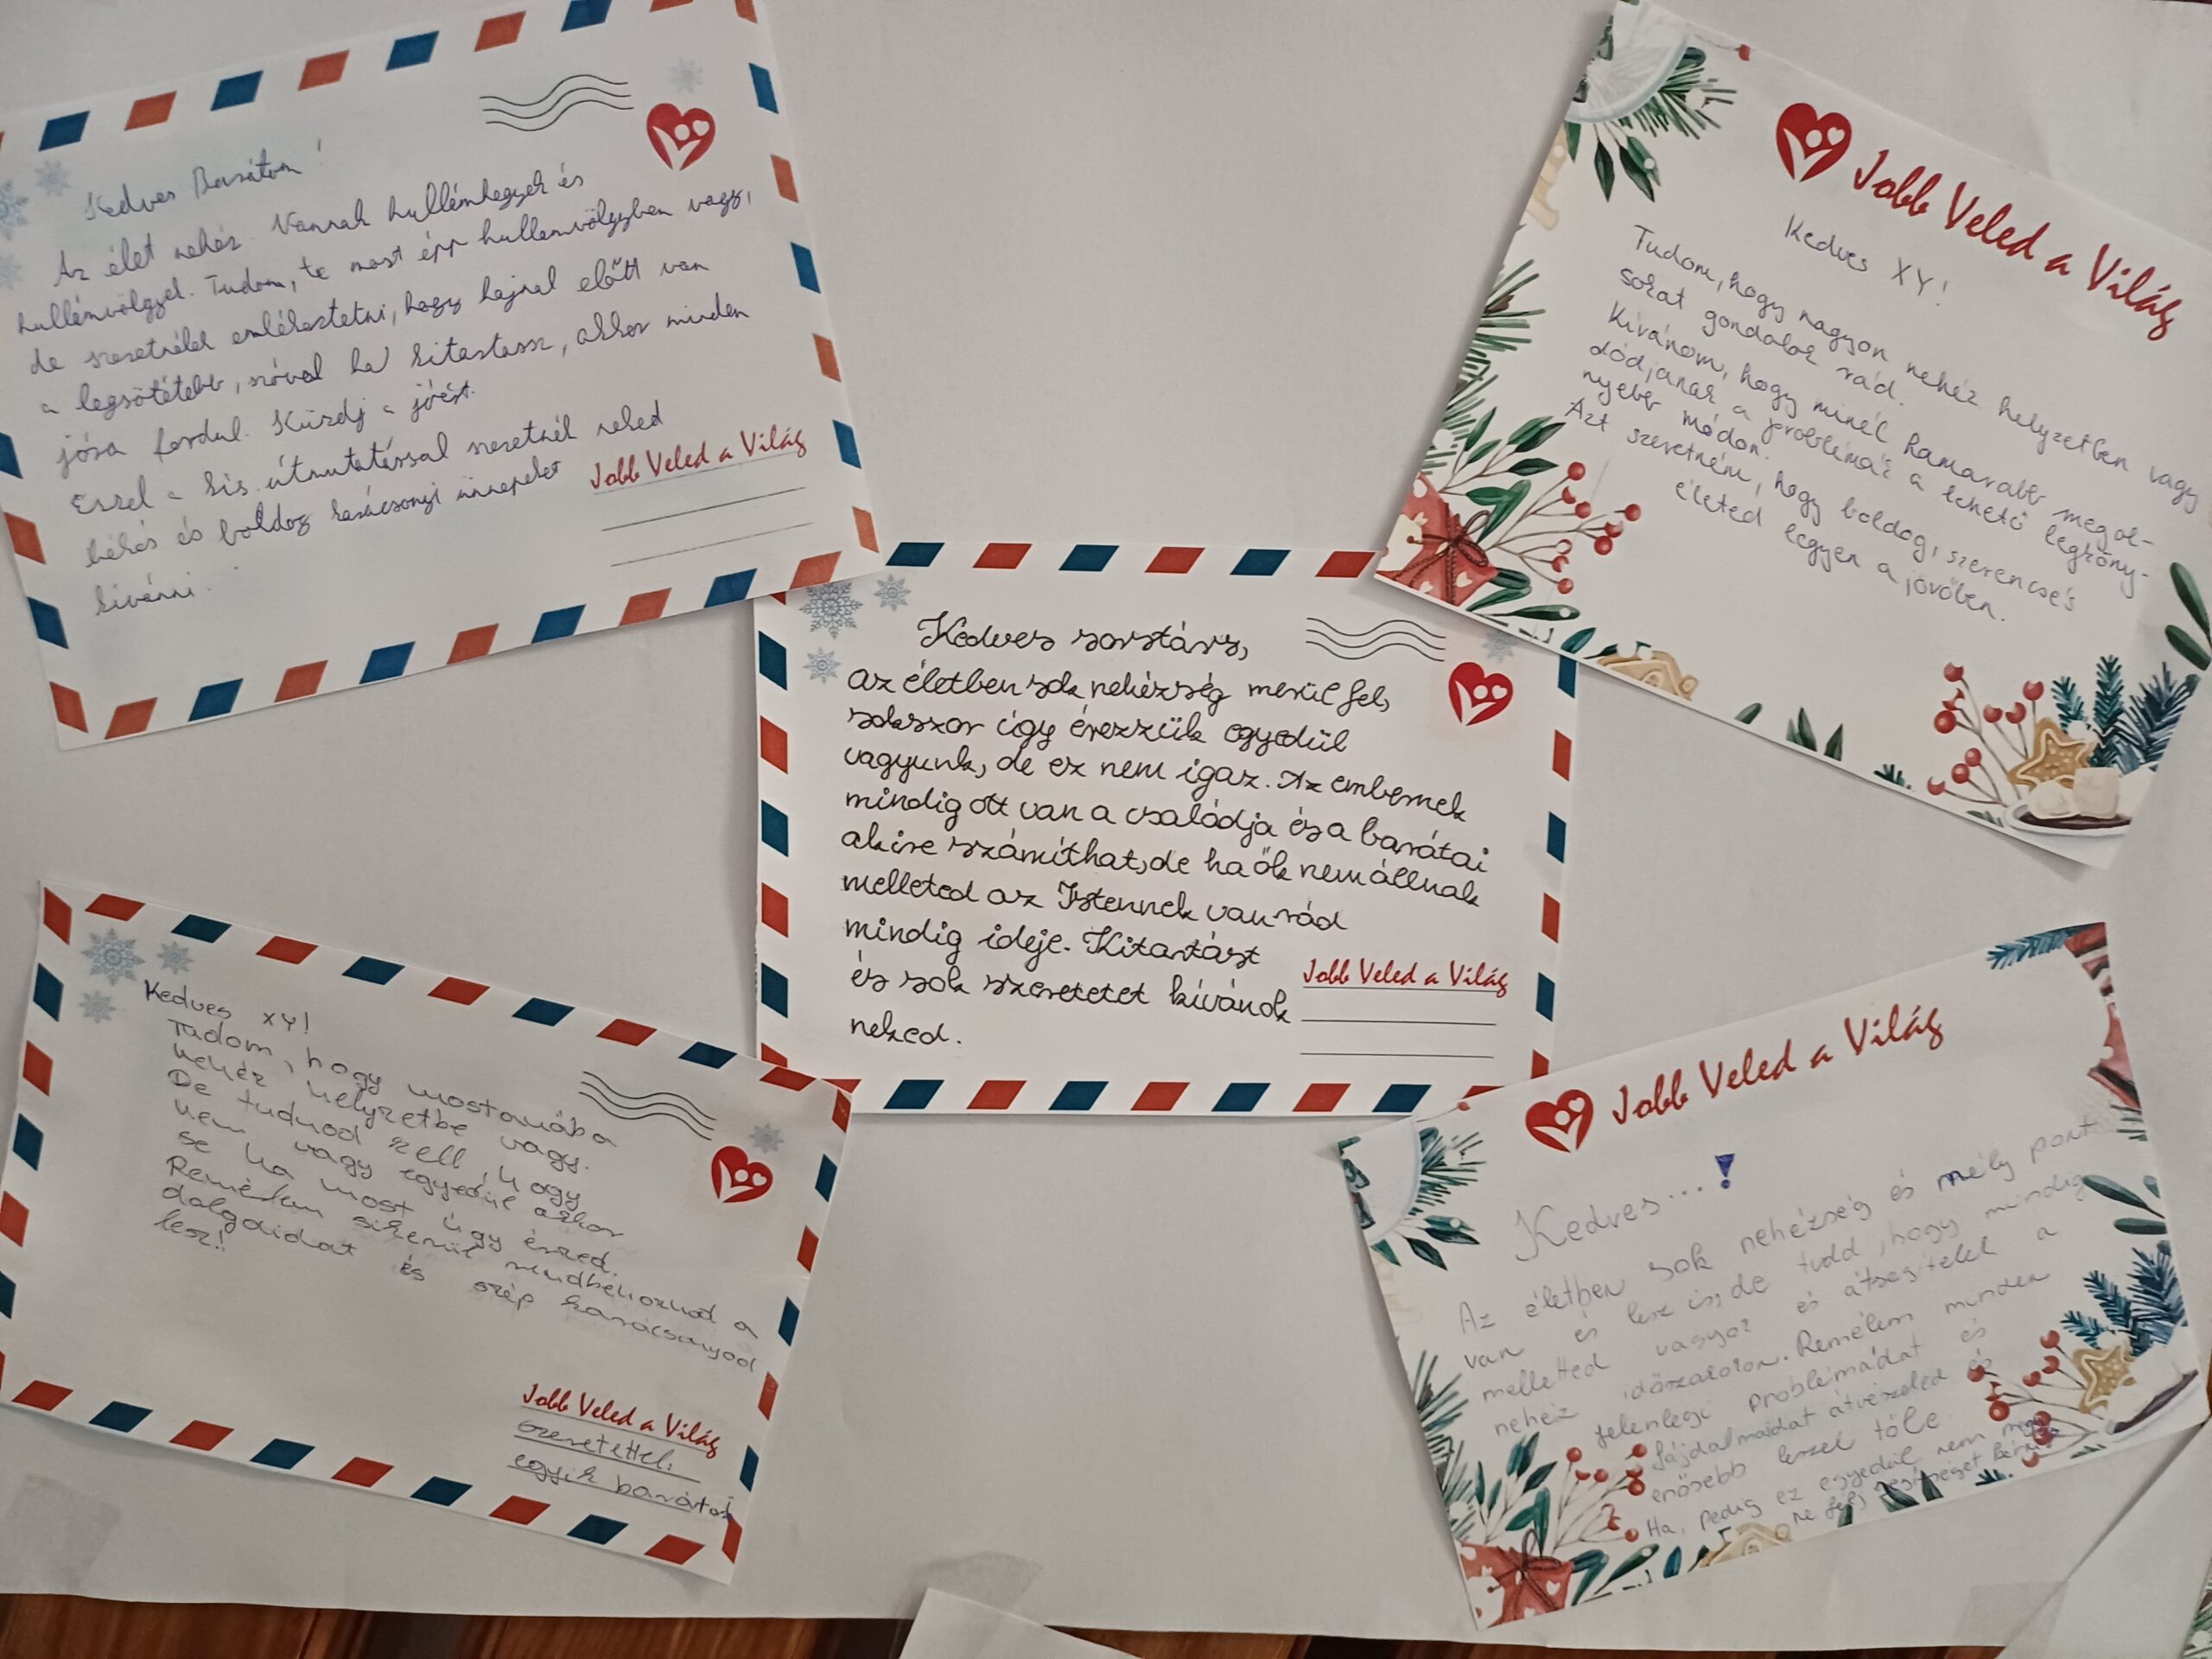 Kedves Barátom!
Az élet nehéz. Vannak hullámhegyek és
hullámvölgyel. Tudom, te most épp hullámvölgyben vagy,
de szeretnélek emlékeztetni, hogy hajnal előtt van
a legsötétebb, szóval ha kitartassz, akkor minden
jóra fordul. Küzdj a jóért.
Ezzel a kis útmutatással szeretnék neked
békés és boldog karácsonyi ünnepeket
kívánni.
Jobb Veled a Világ
Jobb Veled a Világ
Kedves XY!
Tudom, hogy nagyon nehéz helyzetben vagy
sokat gondolok rád.
Kívánom, hogy minél hamarabb megol-
dódjanak a problémák a lehető legköny-
nyebb módon.
Azt szeretném, hogy boldog, szerencsés
életed legyen a jövőben.
Kedves sorstárs,
az életben sok nehézség merül fel,
sokszor úgy érezzük egyedül
vagyunk, de ez nem igaz. Az embernek
mindig ott van a családja és a barátai
akire számíthat, de ha ők nem állnak
melleted az Istennek van rád
mindig ideje. Kitartást
és sok szeretetet kívánok
neked.
Jobb Veled a Világ
Kedves XY!
Tudom, hogy mostanába
nehéz helyzetbe vagy.
De tudnod kell, hogy
nem vagy egyedül akkor
se ha most úgy érzed.
Remélem sikerül rendbehoznod a
dolgaidat és szép karácsonyod
lesz!
Jobb Veled a Világ
szeretettel:
egyik barátod
Jobb Veled a Világ
Kedves...!
Az életben sok nehézség és mély pont
van és lesz is, de tudd, hogy mindig
melletted vagyok és átsegítelek a
nehéz időszakokon. Remélem minden
jelenlegi problémádat és
fájdalmaidat átvészeled és
erősebb leszel tőle.
Ha, pedig ez egyedül nem megy
ne félj segítséget kérni